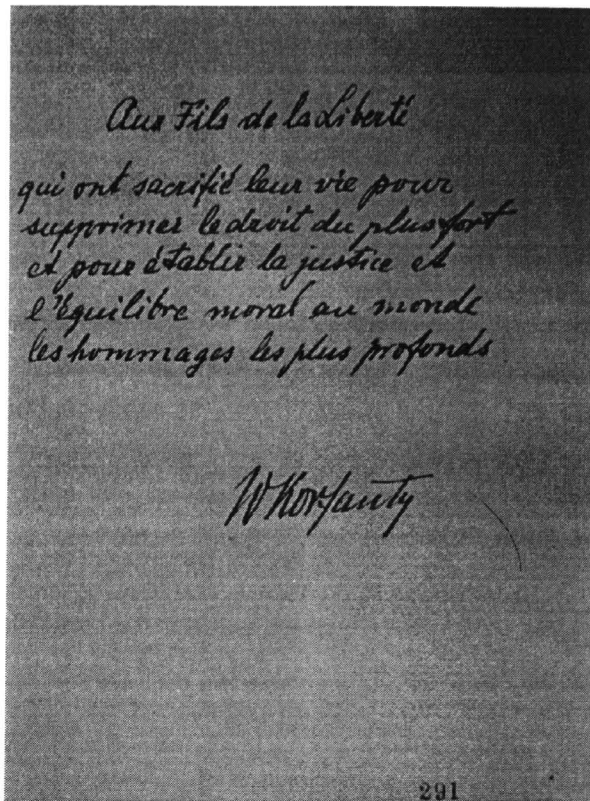 Aux Fils de la Liberté
qui ont sacrifié leur vie pour
supprimer le droit du plus fort
et pour établir la justice et
l'équilibre moral au monde
les hommages les plus profonds
W Korfanty
291